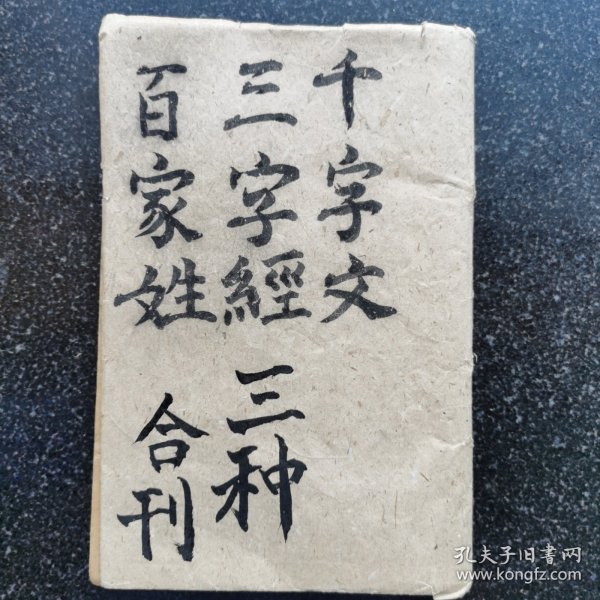 千字文
三字經 三种
百家姓 合刊
孔夫子旧书网
www.kongfz.com